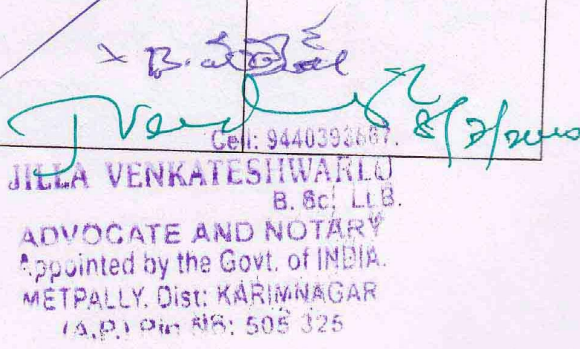 x B.
Cell: 9440393667.
JILLA VENKATESHWARLU
B. Sc; LL B.
ADVOCATE AND NOTARY
Appointed by the Govt. of INDIA.
METPALLY. Dist: KARIMNAGAR
(A.P.) Pin No: 505 325